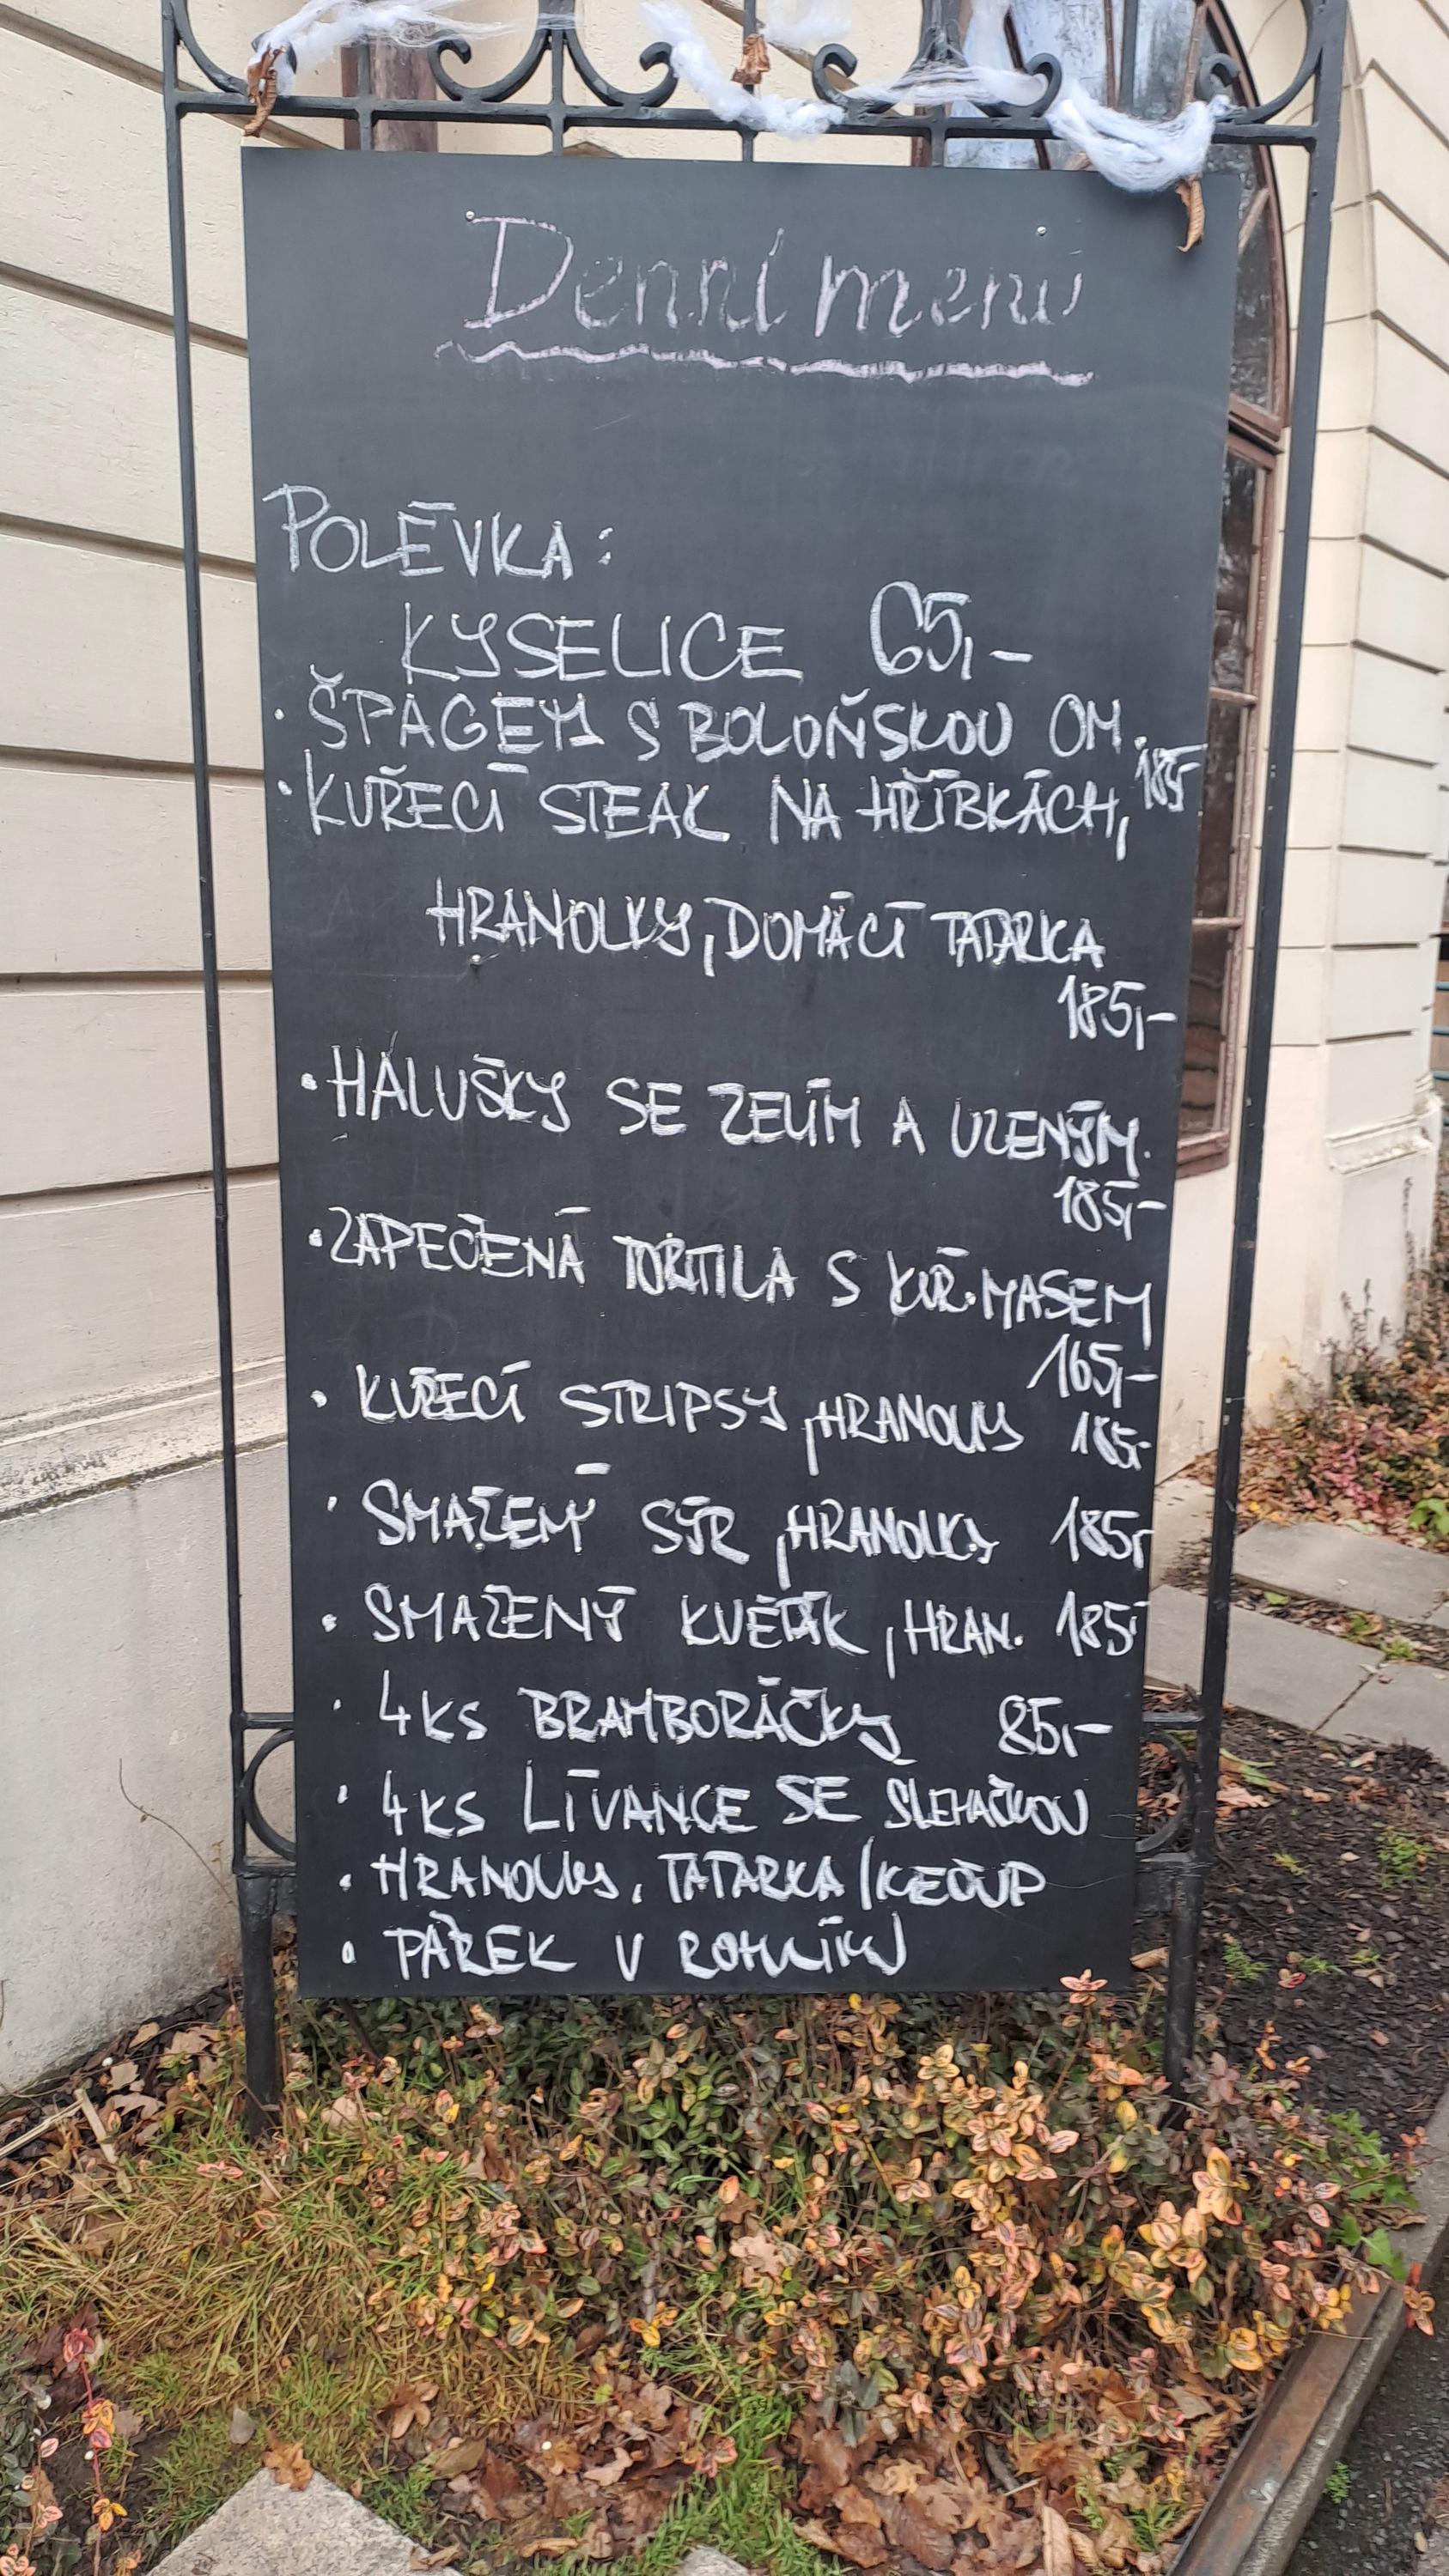 Denní menu
POLÉVKA:
KYSELICE 65,-
· ŠPAGETY S BOLOŇSKOU OM. 185
· KUŘECÍ STEAK NA HŘÍBKÁCH,
HRANOLKY, DOMÁCÍ TATARKA
185,-
· HALUŠKY SE ZELÍM A UZENÝM.
185,-
· ZAPEČENÁ TORTILA S KUŘ. MASEM
165,-
· KUŘECÍ STRIPSY, HRANOLKY 185,-
· SMAŽENÝ SÝR, HRANOLKY 185,-
· SMAŽENÝ KVĚTÁK, HRAN. 185,-
· 4 KS BRAMBORÁČKY 85,-
· 4 KS LÍVANCE SE ŠLEHAČKOU
· HRANOLKY, TATARKA/KEČUP
· PÁREK V ROHLÍKU